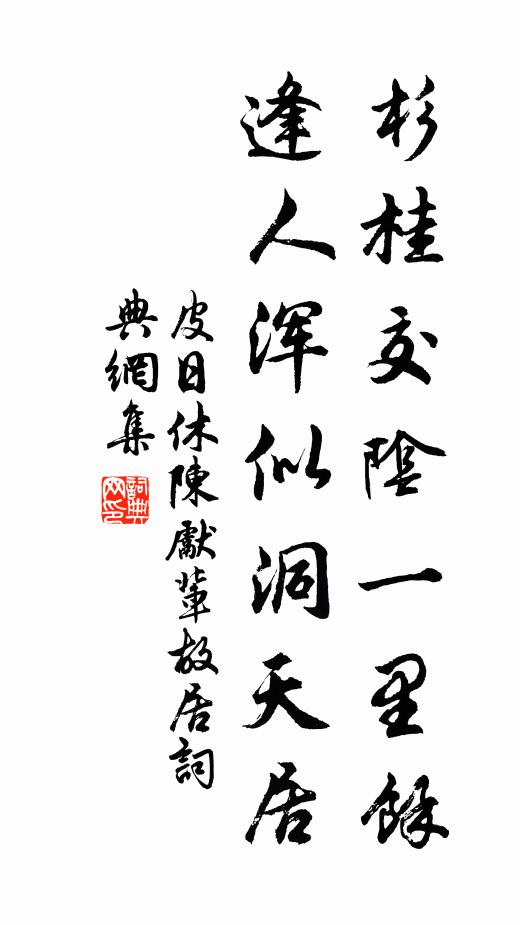 杉桂交陰一里餘
逢人渾似洞天居
皮日休陳獻輩故居詞
典網集
詞典网印